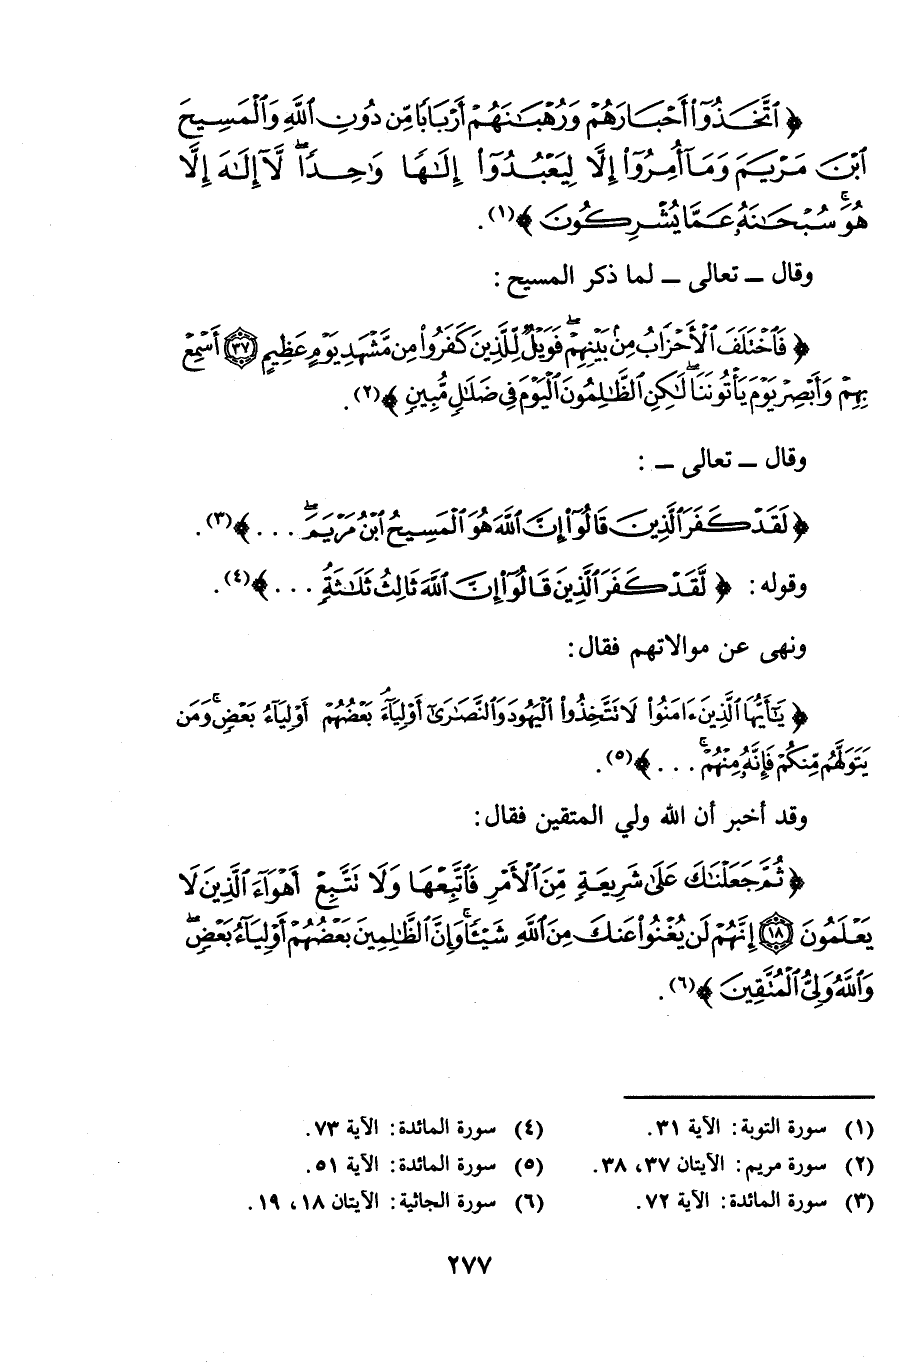 ﴿ ٱتَّخَذُوٓا۟ أَحْبَارَهُمْ وَرُهْبَٰنَهُمْ أَرْبَابًا مِّن دُونِ ٱللَّهِ وَٱلْمَسِيحَ
ٱبْنَ مَرْيَمَ وَمَآ أُمِرُوٓا۟ إِلَّا لِيَعْبُدُوٓا۟ إِلَٰهًا وَٰحِدًا ۖ لَّآ إِلَٰهَ إِلَّا
هُوَ ۚ سُبْحَٰنَهُۥ عَمَّا يُشْرِكُونَ ﴾(١).
وقال ــ تعالى ــ لما ذكر المسيح:
﴿ فَٱخْتَلَفَ ٱلْأَحْزَابُ مِنۢ بَيْنِهِمْ ۖ فَوَيْلٌ لِّلَّذِينَ كَفَرُوا۟ مِن مَّشْهَدِ يَوْمٍ عَظِيمٍ ٣٧ أَسْمِعْ
بِهِمْ وَأَبْصِرْ يَوْمَ يَأْتُونَنَا ۖ لَٰكِنِ ٱلظَّٰلِمُونَ ٱلْيَوْمَ فِى ضَلَٰلٍ مُّبِينٍ ﴾(٢).
وقال ــ تعالى ــ :
﴿ لَقَدْ كَفَرَ ٱلَّذِينَ قَالُوٓا۟ إِنَّ ٱللَّهَ هُوَ ٱلْمَسِيحُ ٱبْنُ مَرْيَمَ ۖ . . . ﴾(٣).
وقوله: ﴿ لَّقَدْ كَفَرَ ٱلَّذِينَ قَالُوٓا۟ إِنَّ ٱللَّهَ ثَالِثُ ثَلَٰثَةٍ ۘ . . . ﴾(٤).
ونهى عن موالاتهم فقال:
﴿ يَٰٓأَيُّهَا ٱلَّذِينَ ءَامَنُوا۟ لَا تَتَّخِذُوا۟ ٱلْيَهُودَ وَٱلنَّصَٰرَىٰٓ أَوْلِيَآءَ ۘ بَعْضُهُمْ أَوْلِيَآءُ بَعْضٍ ۚ وَمَن
يَتَوَلَّهُم مِّنكُمْ فَإِنَّهُۥ مِنْهُمْ ۗ . . . ﴾(٥).
وقد أخبر أن الله ولي المتقين فقال:
﴿ ثُمَّ جَعَلْنَٰكَ عَلَىٰ شَرِيعَةٍ مِّنَ ٱلْأَمْرِ فَٱتَّبِعْهَا وَلَا تَتَّبِعْ أَهْوَآءَ ٱلَّذِينَ لَا
يَعْلَمُونَ ١٨ إِنَّهُمْ لَن يُغْنُوا۟ عَنكَ مِنَ ٱللَّهِ شَيْـًٔا ۚ وَإِنَّ ٱلظَّٰلِمِينَ بَعْضُهُمْ أَوْلِيَآءُ بَعْضٍ ۖ
وَٱللَّهُ وَلِىُّ ٱلْمُتَّقِينَ ﴾(٦).
(١) سورة التوبة: الآية ٣١.
(٢) سورة مريم: الآيتان ٣٧، ٣٨.
(٣) سورة المائدة: الآية ٧٢.
(٤) سورة المائدة: الآية ٧٣.
(٥) سورة المائدة: الآية ٥١.
(٦) سورة الجاثية: الآيتان ١٨، ١٩.
٢٧٧